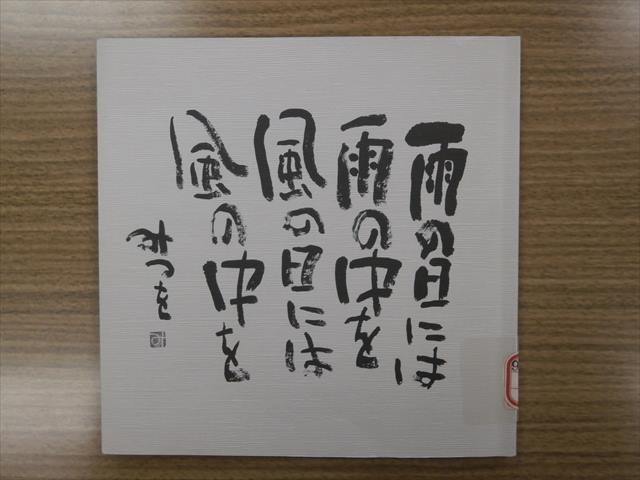 雨の日には
雨の中を
風の日には
風の中を
みつを